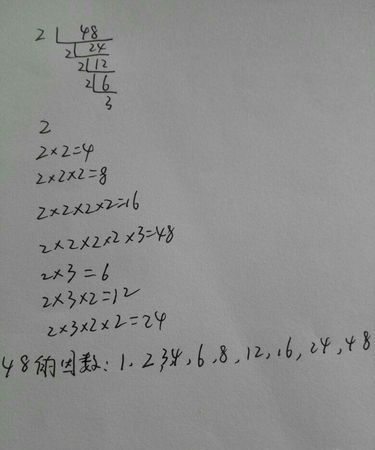 2 48
2 24
2 12
2 6
3
2
2×2=4
2×2×2=8
2×2×2×2=16
2×2×2×2×3=48
2×3=6
2×3×2=12
2×3×2×2=24
48的因数:1、2,3,4,6,8,12,16,24,48